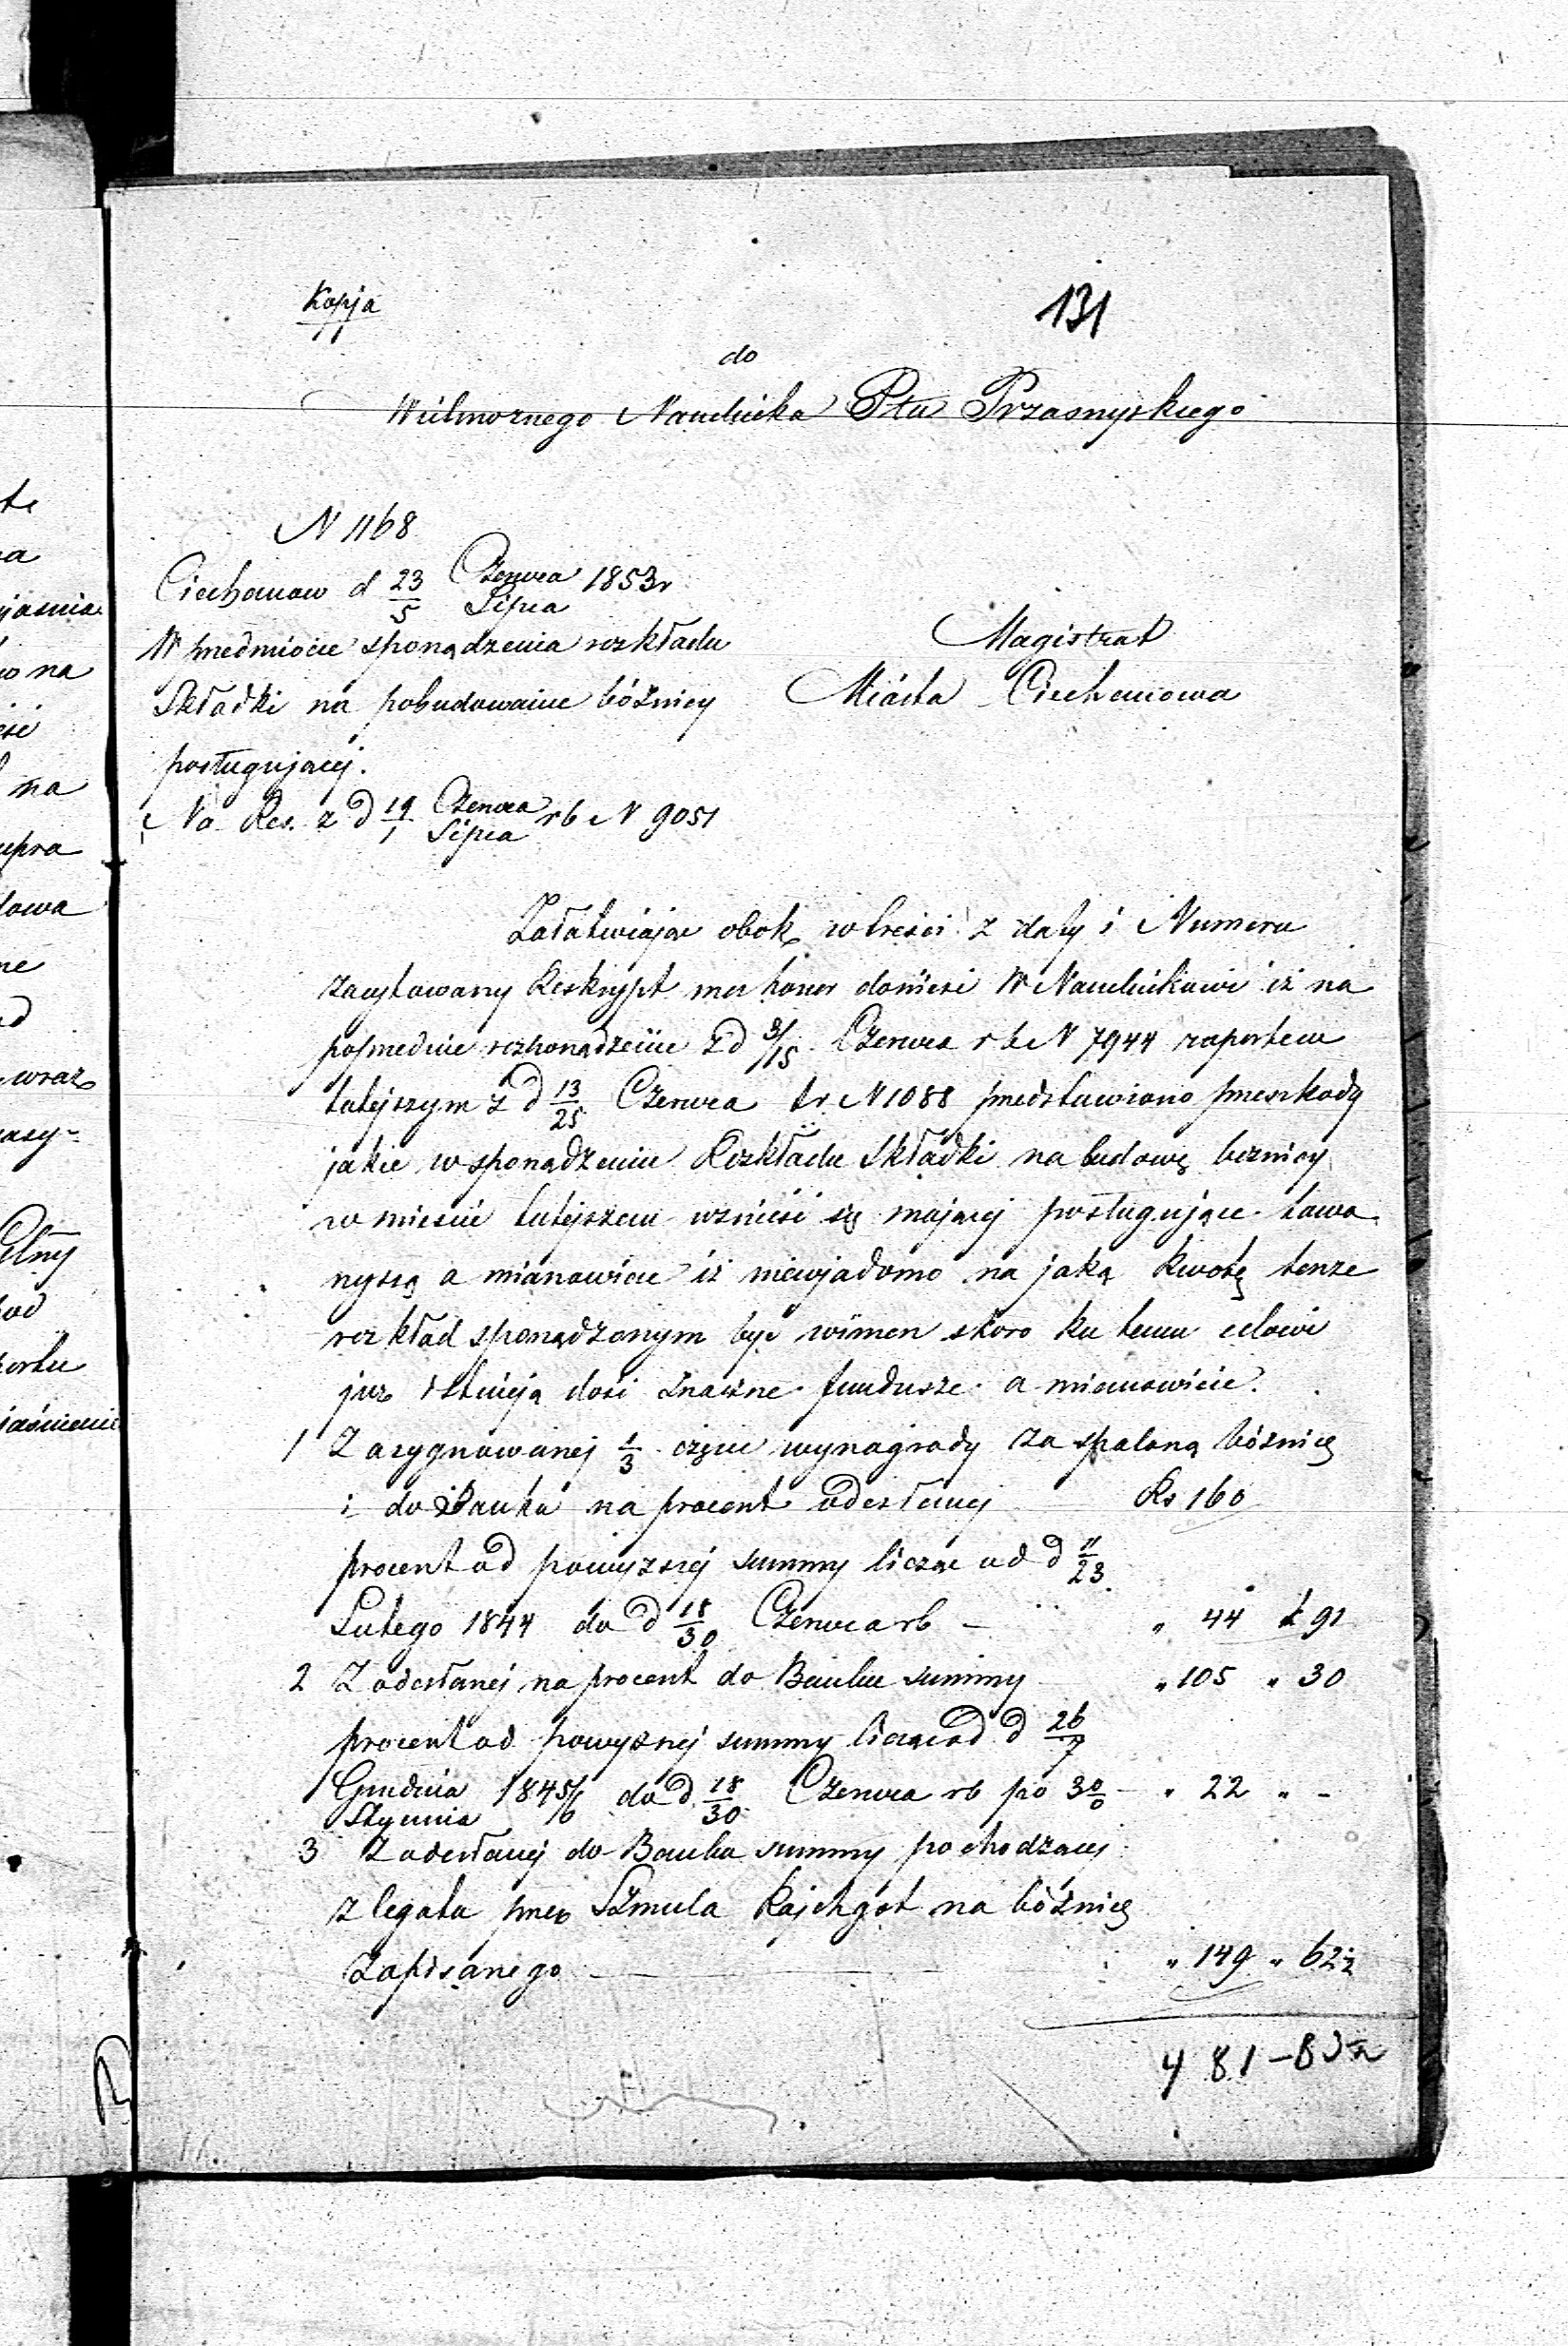 Kopja
131
do
Wielmożnego Naczelnika Ptu Przasnyskiego
N 1168
Ciechanow d 23/5 Czerwca/Lipca 1853r
W przedmiocie sporządzenia rozkładu
Składki na pobudowanie bóżnicy
posługującej.
Na Res. z d 19/1 Czerwca/Lipca rb N 9051
Magistrat
Miasta Ciechanowa
Załatwiając obok w treści z daty i Numeru
zacytowany Reskrypt ma honor donieść W Naczelnikowi iż na
poprzednie rozporządzenie z d 3/15 Czerwca r b N 7944 raportem
tutejszym z d 13/25 Czerwca br. N 1088 przedstawiono przeszkody
jakie w sporządzeniu Rozkładu Składki na budowę boznicy
w mieście tutejszem wznieść się mającej posługujące. towa
rzyszą a mianowicie iż niewjadomo na jaką kwotę tenze
rozkład sporządzonym być winien skoro ku temu celowi
juz istnieją dość znaczne fundusze a mianowicie.
1 Z asygnowanej 1/3 części wynagrody za spaloną bóżnicę
i do Banku na procent odesłanej Rs 160
procent od powyzszej summy licząc od d 11/23
Lutego 1844 do d 18/30 Czerwca rb - „ 44 k 91
2 Z odesłanej na procent do Banku summy „ 105 „ 30
procent od powyzszej summy licząc od d 26/7
Grudnia/Stycznia 1845/6 do d. 18/30 Czerwca rb po 3 0/0 - „ 22 „ -
3 Z odesłanej do Banku summy pochodzącej
z legatu przez Szmula Rajchgot na bóżnicę
zapisanego - „ 149 „ 62½
481-83½